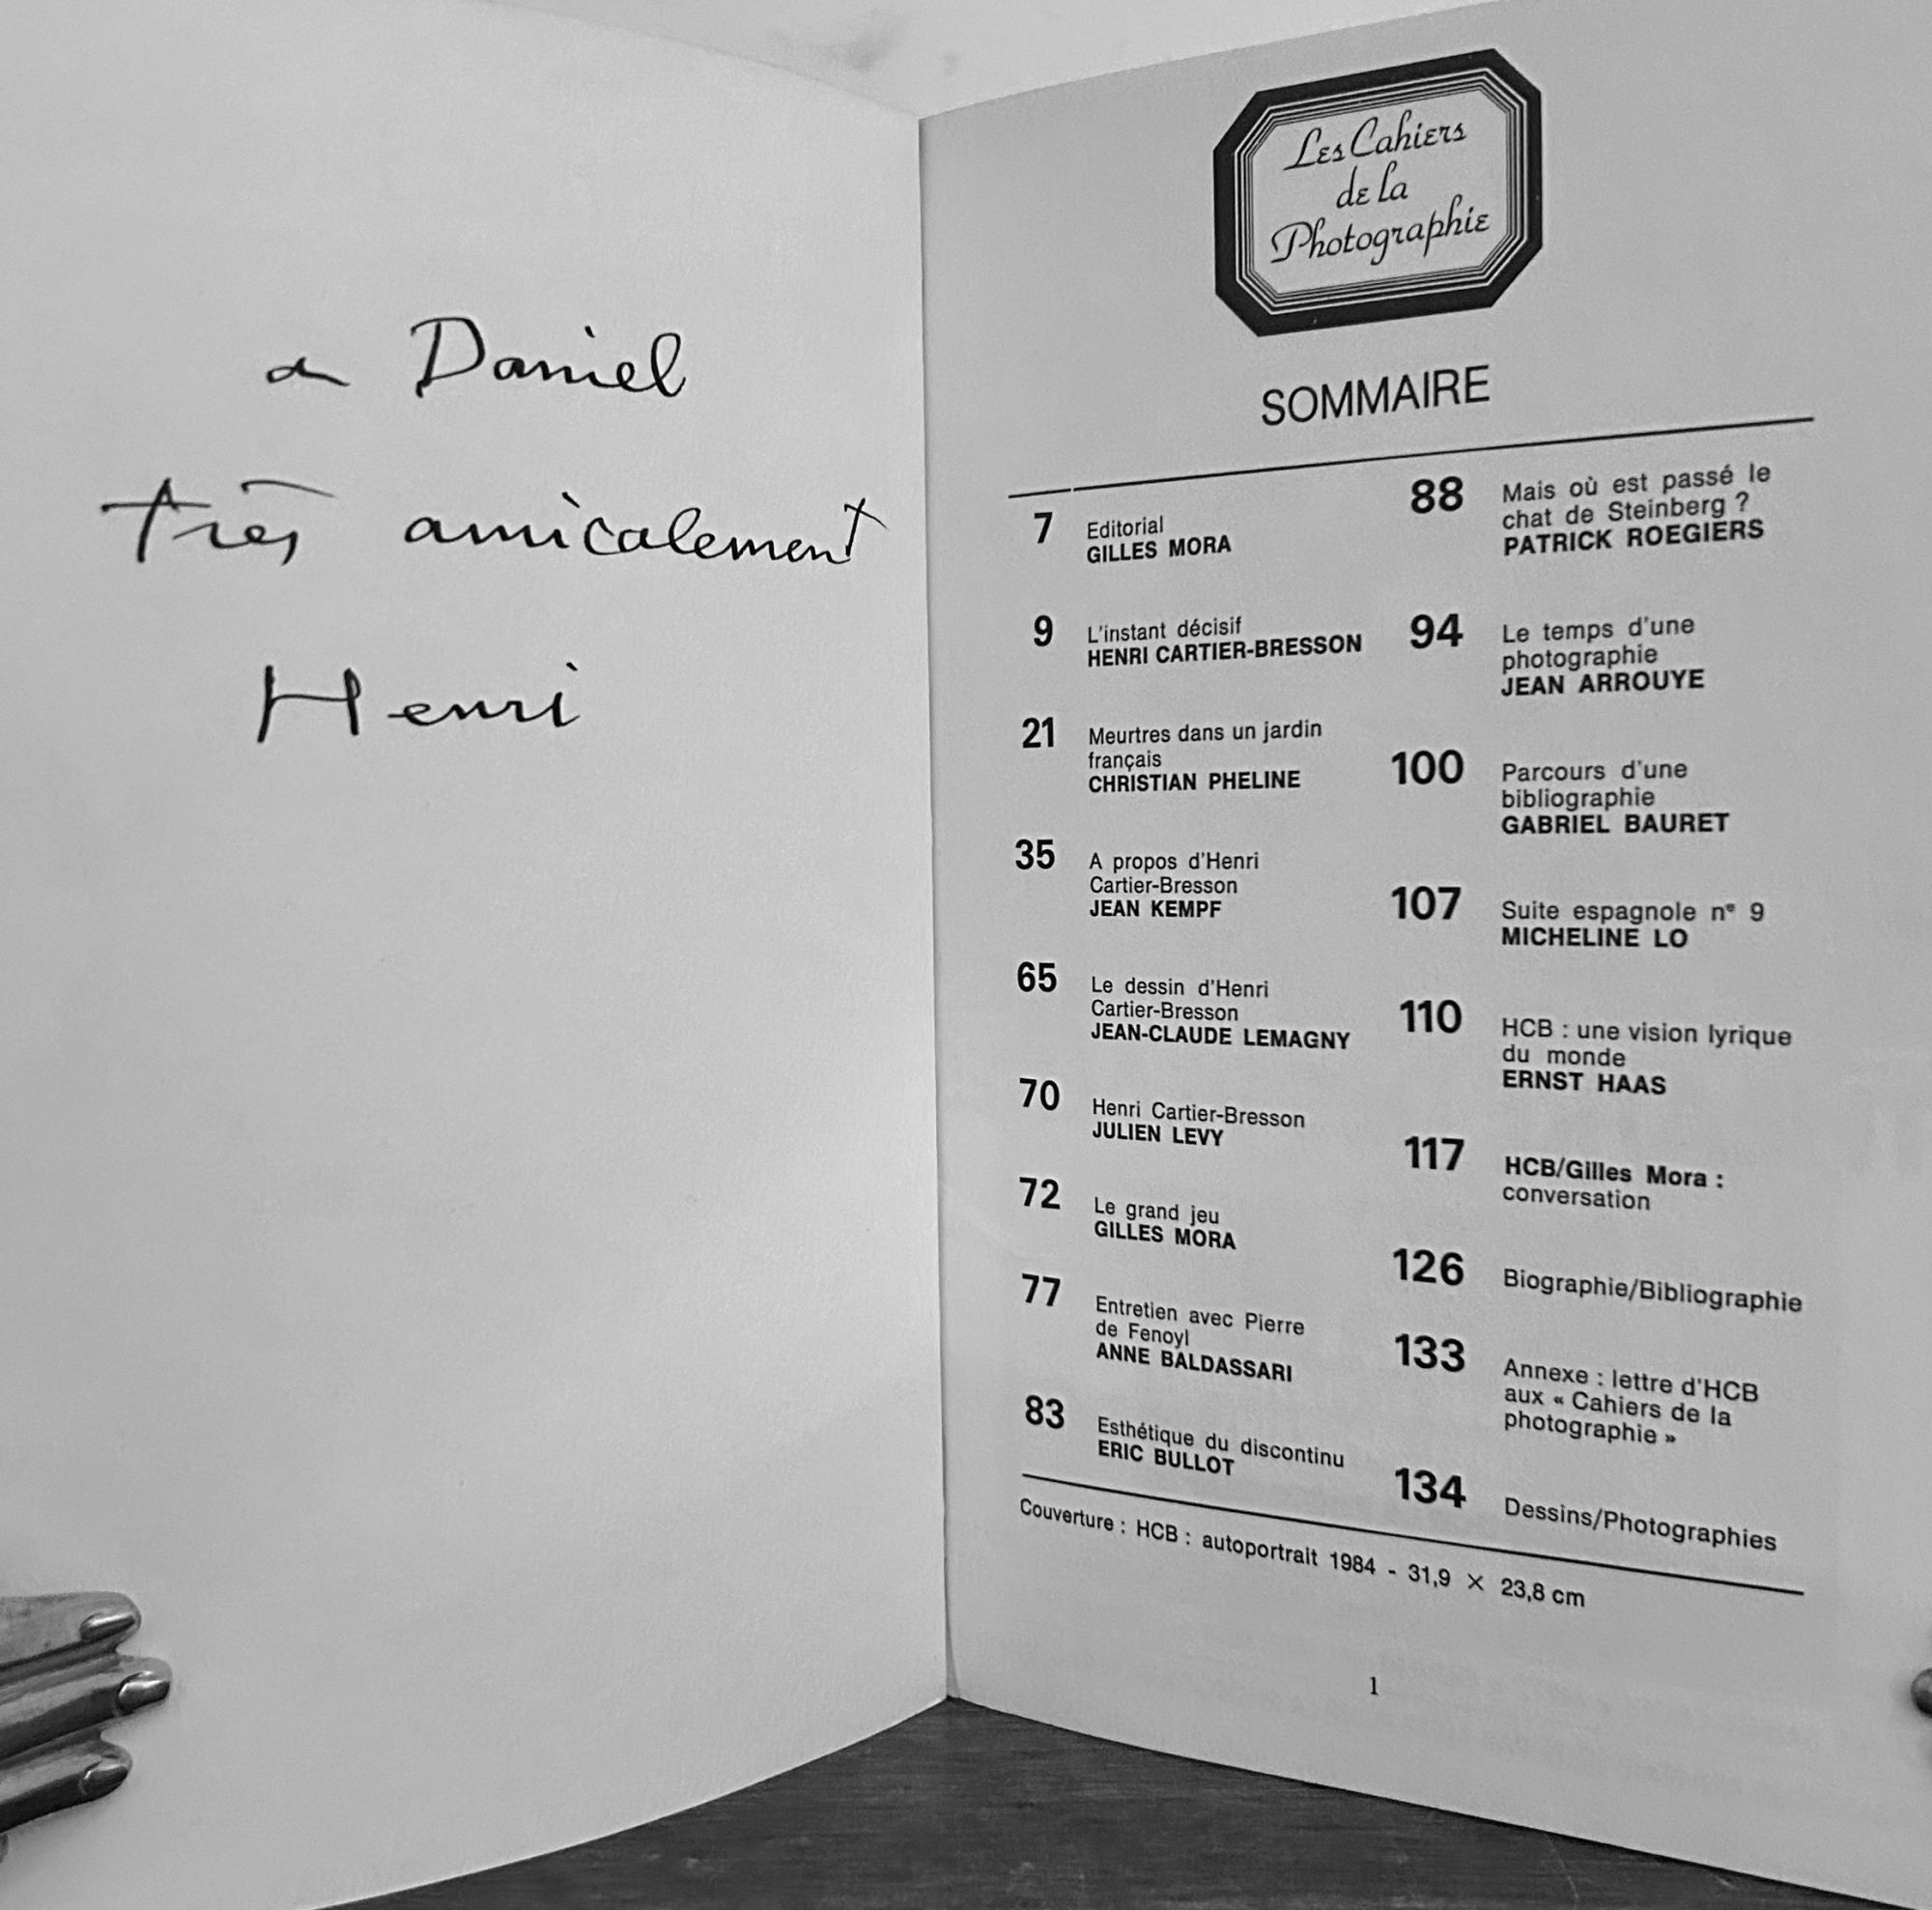 a Daniel
très amicalement
Henri
Les Cahiers
de la
Photographie
SOMMAIRE
7 Editorial
GILLES MORA
9 L'instant décisif
HENRI CARTIER-BRESSON
21 Meurtres dans un jardin
français
CHRISTIAN PHELINE
35 A propos d'Henri
Cartier-Bresson
JEAN KEMPF
65 Le dessin d'Henri
Cartier-Bresson
JEAN-CLAUDE LEMAGNY
70 Henri Cartier-Bresson
JULIEN LEVY
72 Le grand jeu
GILLES MORA
77 Entretien avec Pierre
de Fenoyl
ANNE BALDASSARI
83 Esthétique du discontinu
ERIC BULLOT
88 Mais où est passé le
chat de Steinberg ?
PATRICK ROEGIERS
94 Le temps d'une
photographie
JEAN ARROUYE
100 Parcours d'une
bibliographie
GABRIEL BAURET
107 Suite espagnole nº 9
MICHELINE LO
110 HCB : une vision lyrique
du monde
ERNST HAAS
117 HCB/Gilles Mora :
conversation
126 Biographie/Bibliographie
133 Annexe : lettre d'HCB
aux « Cahiers de la
photographie »
134 Dessins/Photographies
Couverture : HCB : autoportrait 1984 - 31,9 × 23,8 cm
1